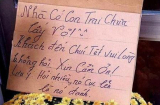 Nhà Có Con Trai Chưa
Lấy Vợ!
Khách đến Chơi Tết vui lòng
Không hỏi Xin Cảm Ơn!
Lưu ý: Hỏi nhiều, nó
là nó đánh